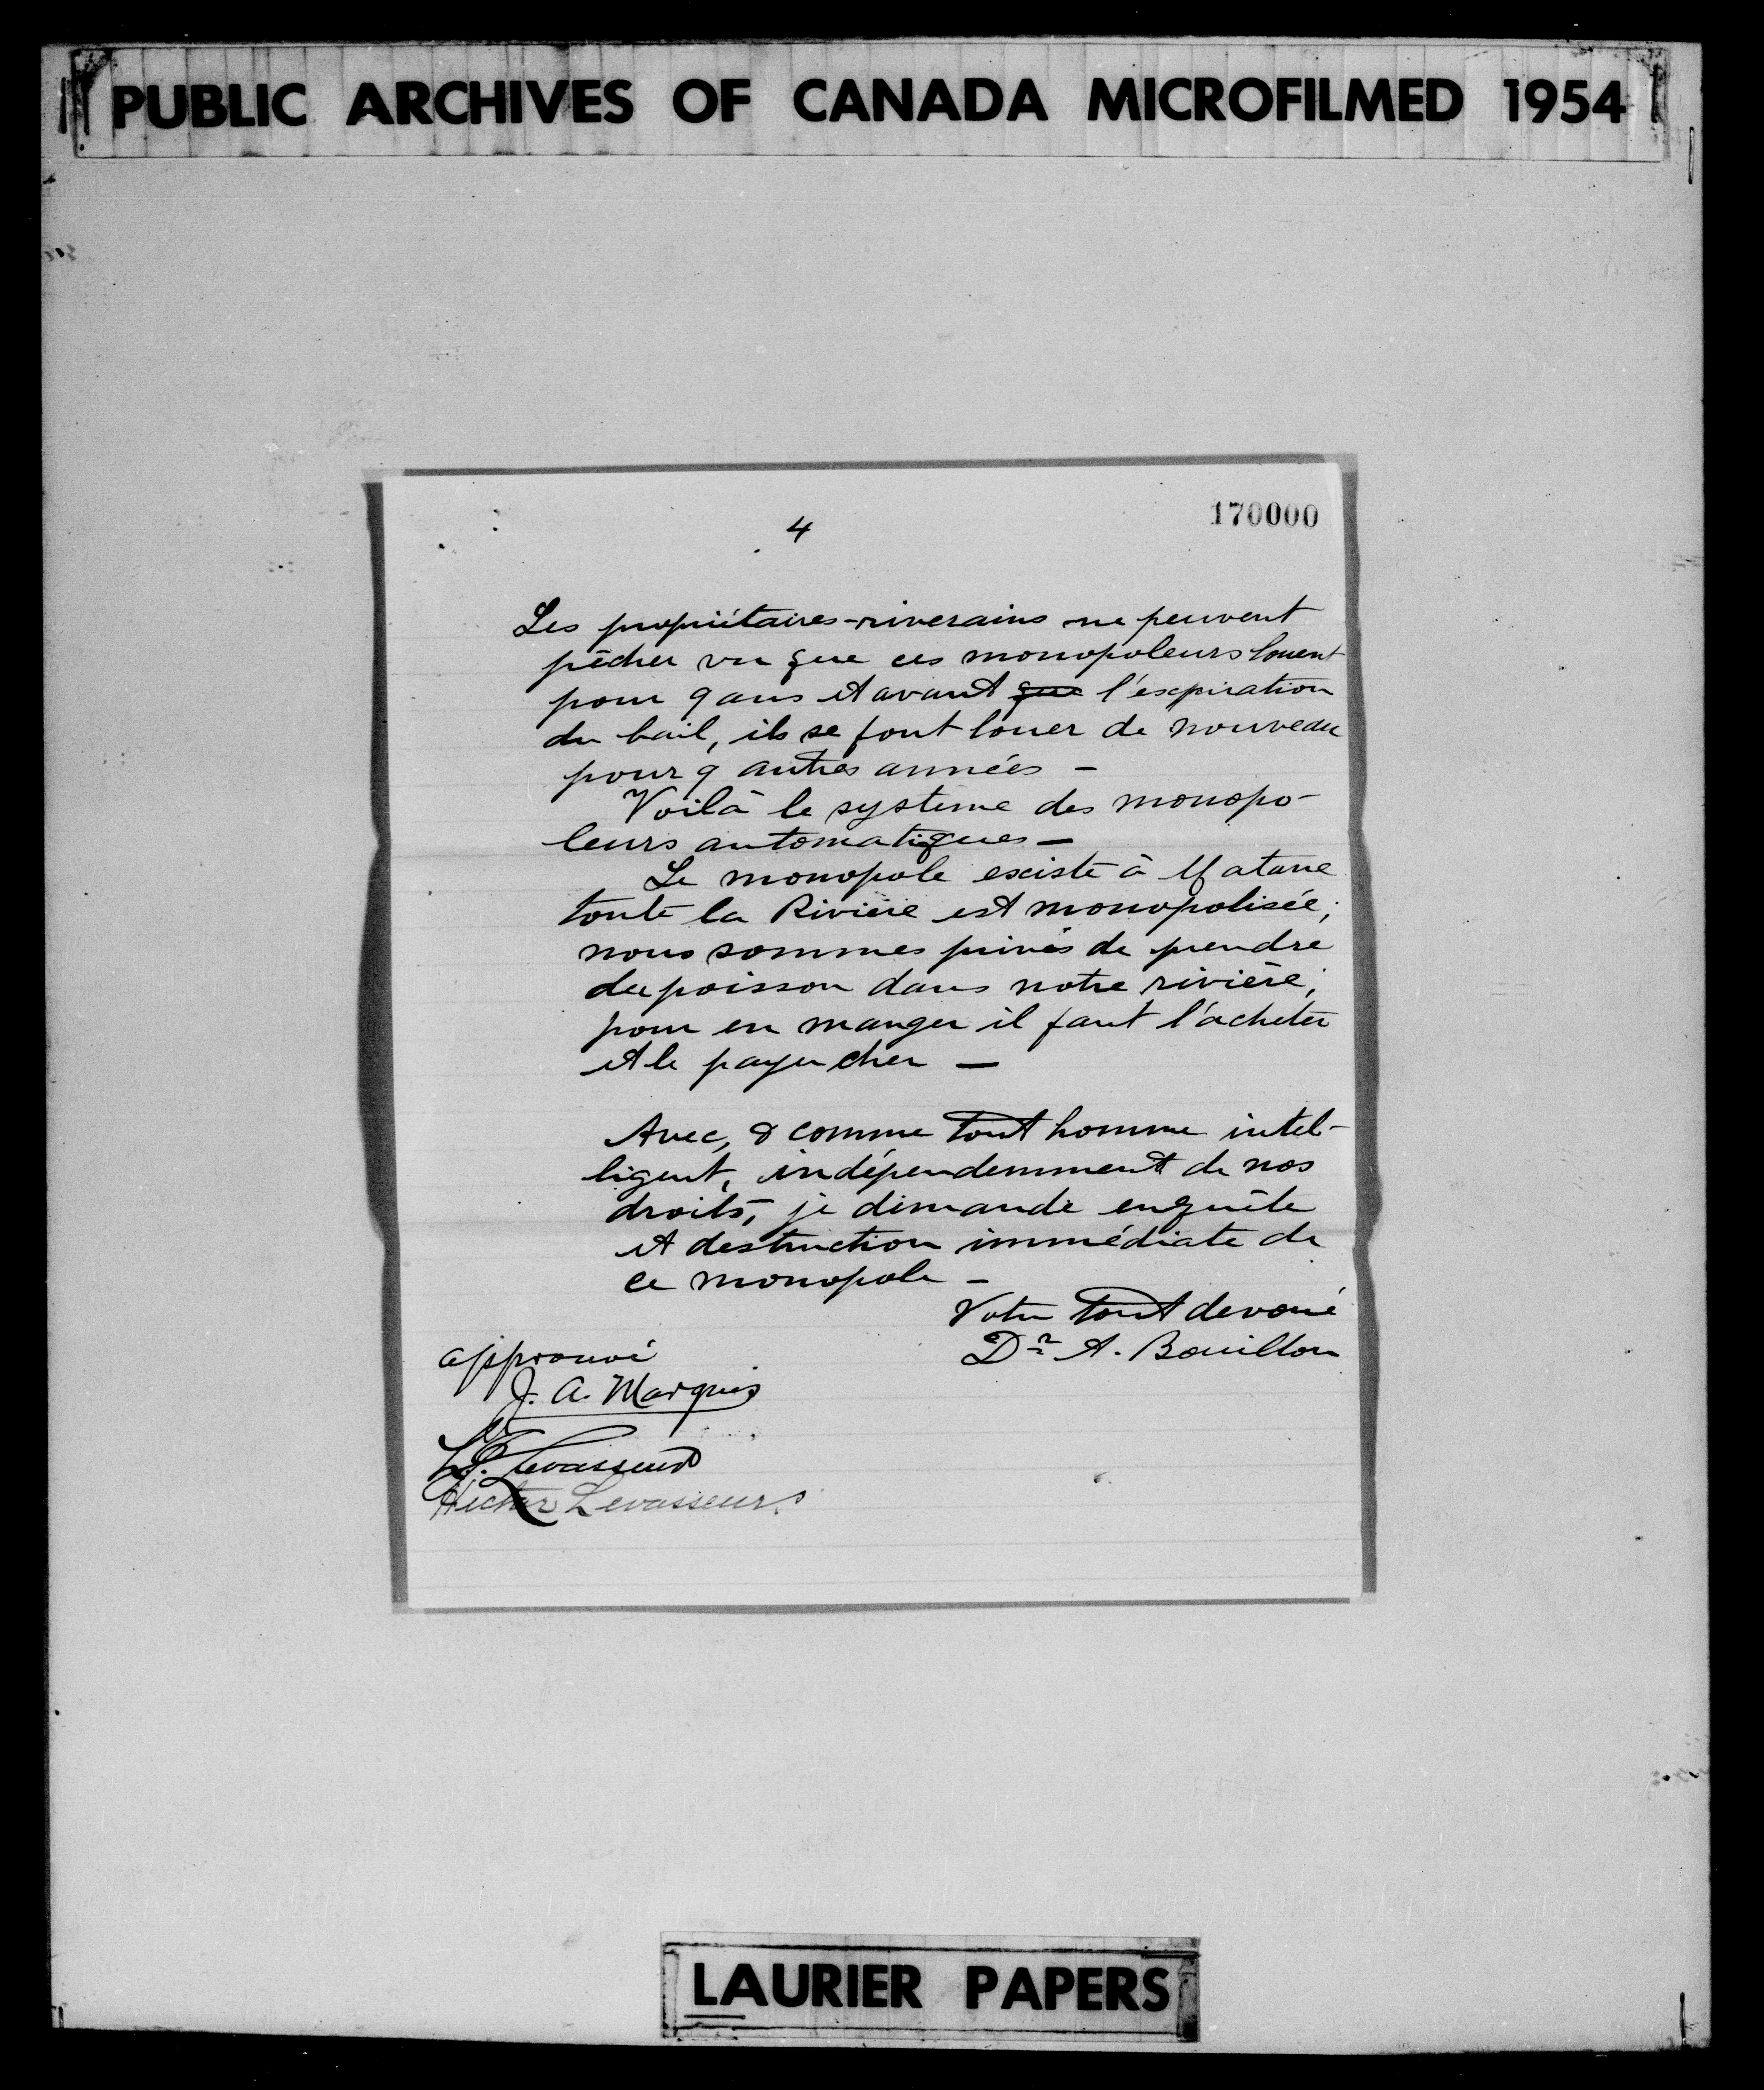 PUBLIC ARCHIVES OF CANADA MICROFILMED 1954
170000
4
Les propriétaires-riverains ne peuvent
pêcher vu que ces monopoleurs louent
pour 9 ans et avant que l'expiration
du bail, ils se font louer de nouveau
pour 9 autres années -
Voilà le système des monopo-
leurs automatiques -
Le monopole existe à Matane
toute la Rivière est monopolisée;
nous sommes privés de prendre
du poisson dans notre rivière;
pour en manger il faut l'acheter
et le payer cher -
Avec, & comme tout homme intel-
ligent, indépendemment de nos
droits, je demande enquête
et destruction immédiate de
ce monopole -
Votre tout devoué
Dr A. Bouillon
approuvé
J. A. Marquis
Levasseur
Hector Levasseur
LAURIER PAPERS